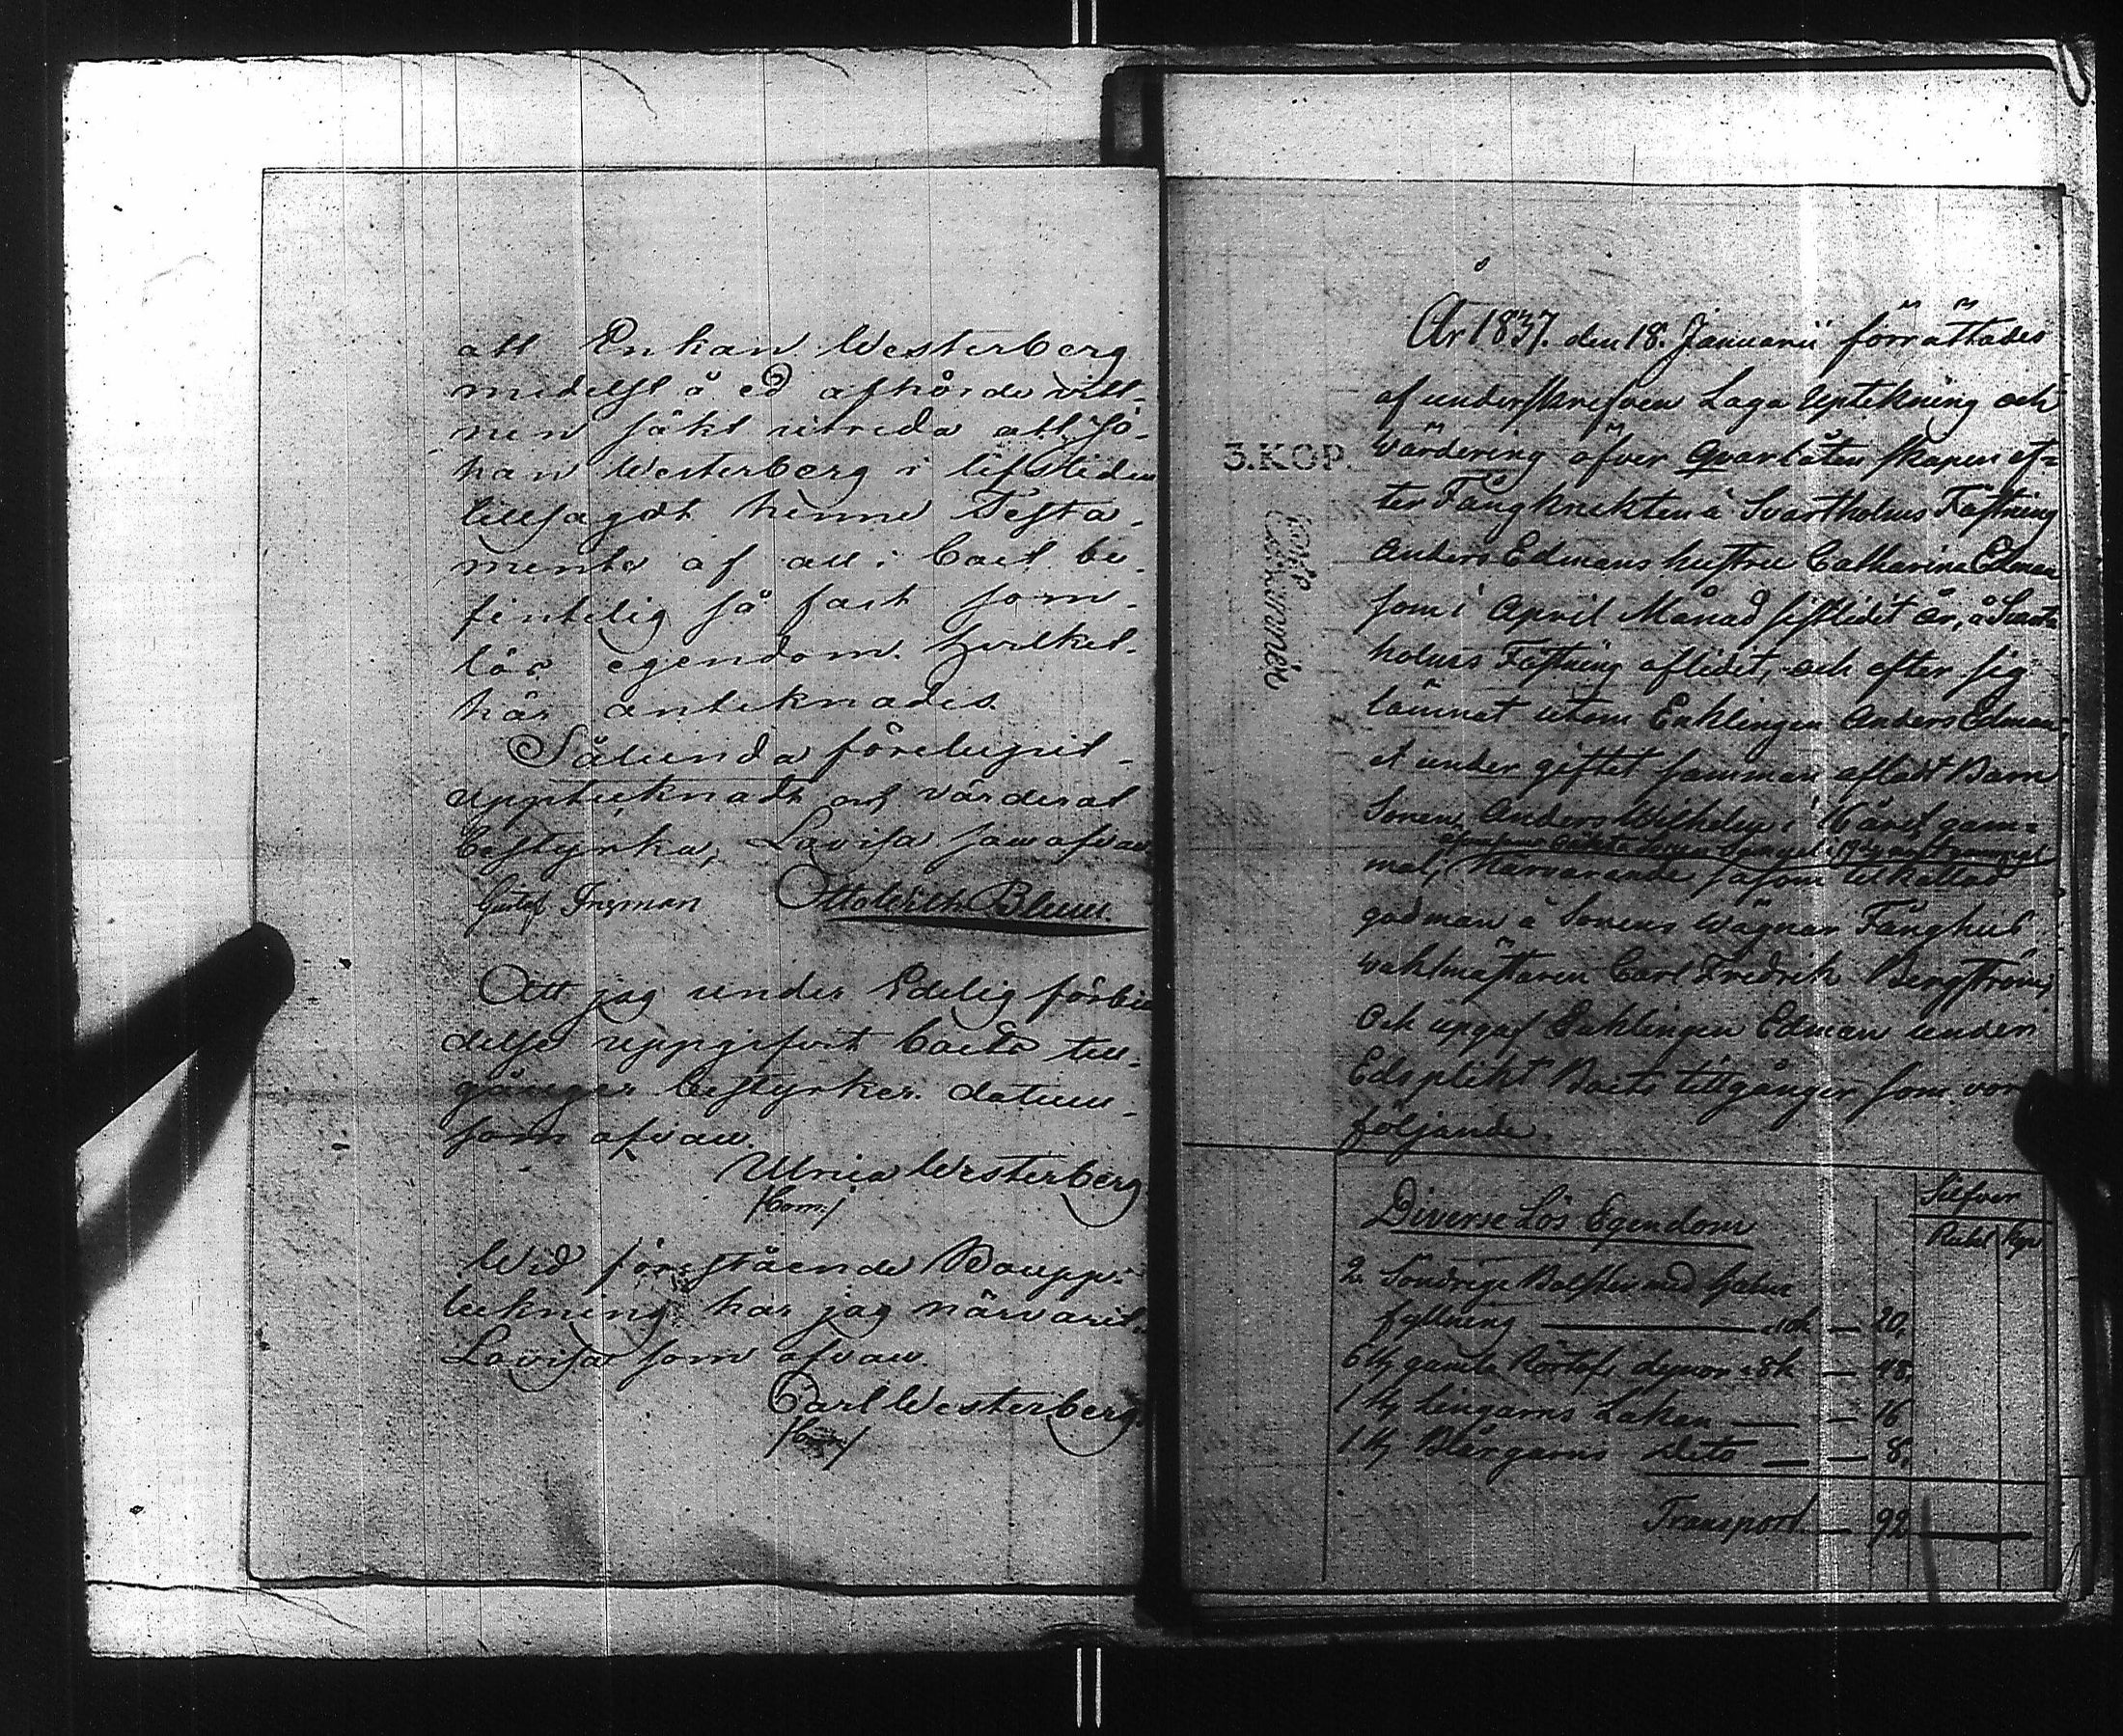 att Enkan Westerberg
medelst å ed afhörde vitt-
nen säkt utreda att Jo-
han Westerberg i lifstiden
tillsagdt henne Testa-
mente af all i Boet be-
fintelig så fast som
lös egendom. hvilket
här anteknades
Sålunda förelupit
upptecknadt och värderat
bestyrka, Lovisa som ofvan
Gustaf Ingman Otto Wilh Blum
Att jag under Edelig förbin
delse uppgifvit boets till-
gångar bestyrker. datum
som ofvan
Ulrica Westerberg
Wid förestående Boupp-
tekning har jag närvarit.
Lovisa som ofvan
Carl Westerberg
År 1837. den 18. Januarii förrättades
af underskrefven Laga Uptekning och
3.KOP. Wärdering öfver Qvarlåtenskapen ef=
ter Fångknekten å Svartholms Fästning
Anders Edmans hustru Catharina Edman
som i April Månad sistledit år, å Svart
holms Fästning aflidit, och efter sig
lämnat utom Enklingen Anders Edman,
et under giftet samman afladt Barn
Sonen Anders Wilhelm i 16 året gam=
mal, Närvarande såsom tilkallad
godman å Sonens wägnar Fånghus
wahtmästaren Carl Fredrik Bergström,
Och upgaf Enklingen Edman under
Eds plikt Boets tillgångar som voro
följande.
Silfver
Diverse Lös Egendom
Rubel Kop
2. Sondrige Bolster med halm
fyllning — a 10k — 20,
6 st gamla dynor a 8k — 48,
1 st Lingarns Lakan — 16
1 st Blårgarns Dito — 8,
Transport — 92